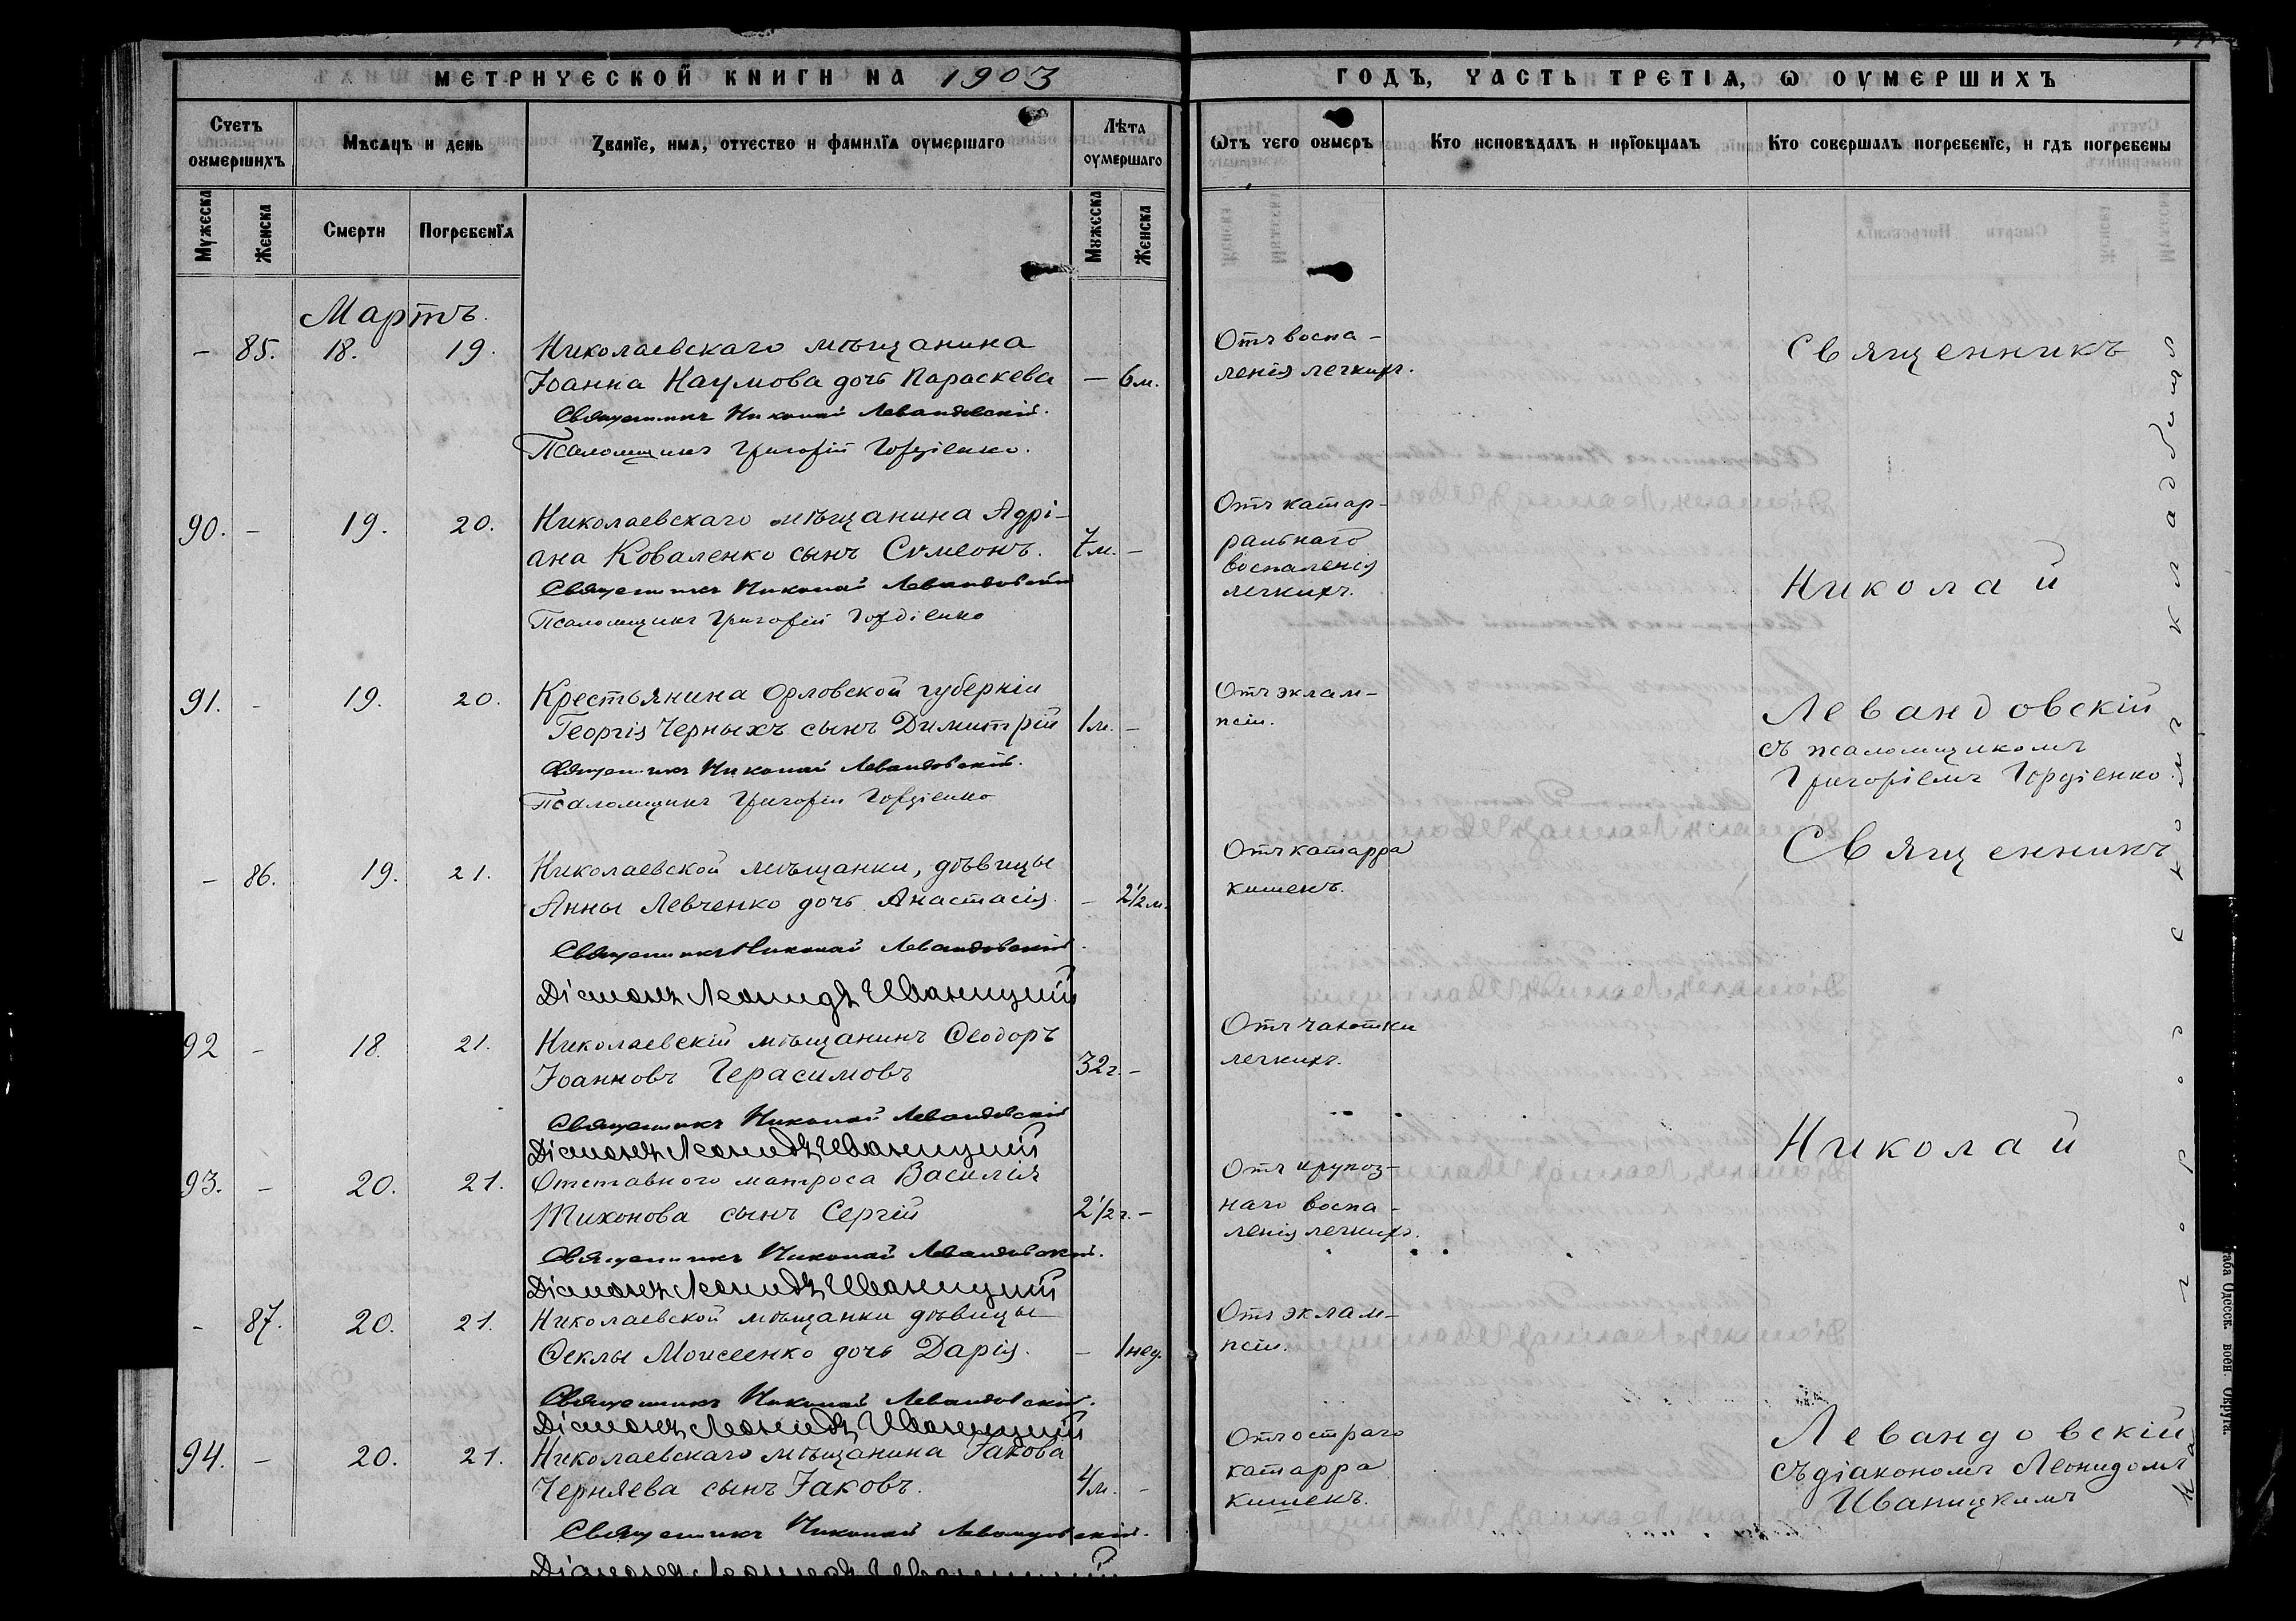 МЕТРИЧЕСКОЙ КНИГИ НА 1903
Счетъ оумершихъ
Мѣсяцъ и день
Званїе, имя, отчество и фамилїя оумершаго
Лѣта оумершаго
Мужеска
Женска
Смерти
Погребенїя
Мужеска
Женска
Мартъ.
– 85. 18. 19. Николаевскаго мѣщанина
Іоанна Наумова дочь Параскева – 6 м.
Священникъ Николай Левандовскій.
Псаломщикъ Григорій Гордіенко.
90. – 19. 20. Николаевскаго мѣщанина Адрі-
ана Коваленко сынъ Сѵмеонъ. 7 м. –
Священникъ Николай Левандовскій
Псаломщикъ Григорій Гордіенко
91. – 19. 20. Крестьянина Орловской губерніи
Георгія Черныхъ сынъ Димитрій 1 м. –
Священникъ Николай Левандовскій.
Псаломщикъ Григорій Гордіенко
– 86. 19. 21. Николаевской мѣщанки, дѣвицы
Анны Левченко дочь Анастасія. – 2½ м.
Священникъ Николай Левандовскій.
Діаконъ Леонидъ Иваницкій
92 – 18. 21. Николаевскій мѣщанинъ Ѳеодоръ
Іоанновъ Герасимовъ 32 г. –
Священникъ Николай Левандовскій
Діаконъ Леонидъ Иваницкій
93. – 20. 21. Отставного матроса Василія
Тихонова сынъ Сергій 2½ г. –
Священникъ Николай Левандовскій.
Діаконъ Леонидъ Иваницкій
– 87. 20. 21. Николаевской мѣщанки дѣвицы
Ѳеклы Моисеенко дочь Дарія. – 1 нед.
Священникъ Николай Левандовскій.
Діаконъ Леонидъ Иваницкій
94. – 20. 21. Николаевскаго мѣщанина Іакова
Черняева сынъ Іаковъ. 4 м. –
Священникъ Николай Левандовскій.
Діаконъ Леонидъ Иваницкій
ГОДЪ, ЧАСТЬ ТРЕТІЯ, Ѡ ОУМЕРШИХЪ
Ѡтъ чего оумеръ
Кто исповѣдалъ и прїобщалъ
Кто совершалъ погребенїе, и гдѣ погребены
Отъ воспа-
ленія легкихъ.
Отъ катар-
ральнаго
воспаленія
легкихъ.
Отъ эклам-
псіи.
Отъ катарра
кишекъ.
Отъ чахотки
легкихъ.
Отъ крупоз-
наго воспа-
ленія легкихъ.
Отъ эклам-
псіи.
Отъ остраго
катарра
кишекъ.
Священникъ
Николай
Левандовскій
съ псаломщикомъ
Григоріемъ Гордіенко.
Священникъ
Николай
Левандовскій
съ діакономъ Леонидомъ
Иваницкимъ
На городскомъ кладбищѣ
аба Одесск. воен. Округа.